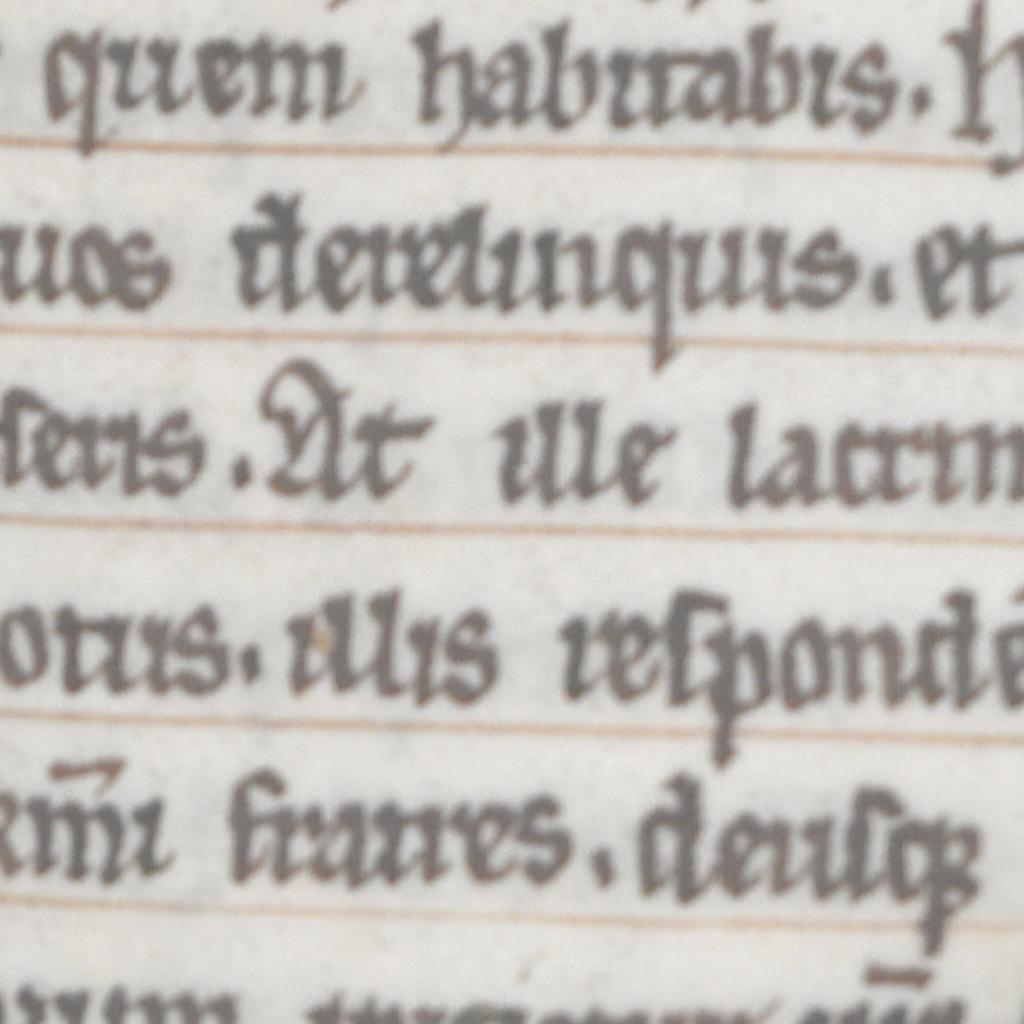 quem habitabis.
uos derelinquis. et
seris. At ille lacrim
otus. illis responde
rm̄i fratres. deusqꝫ